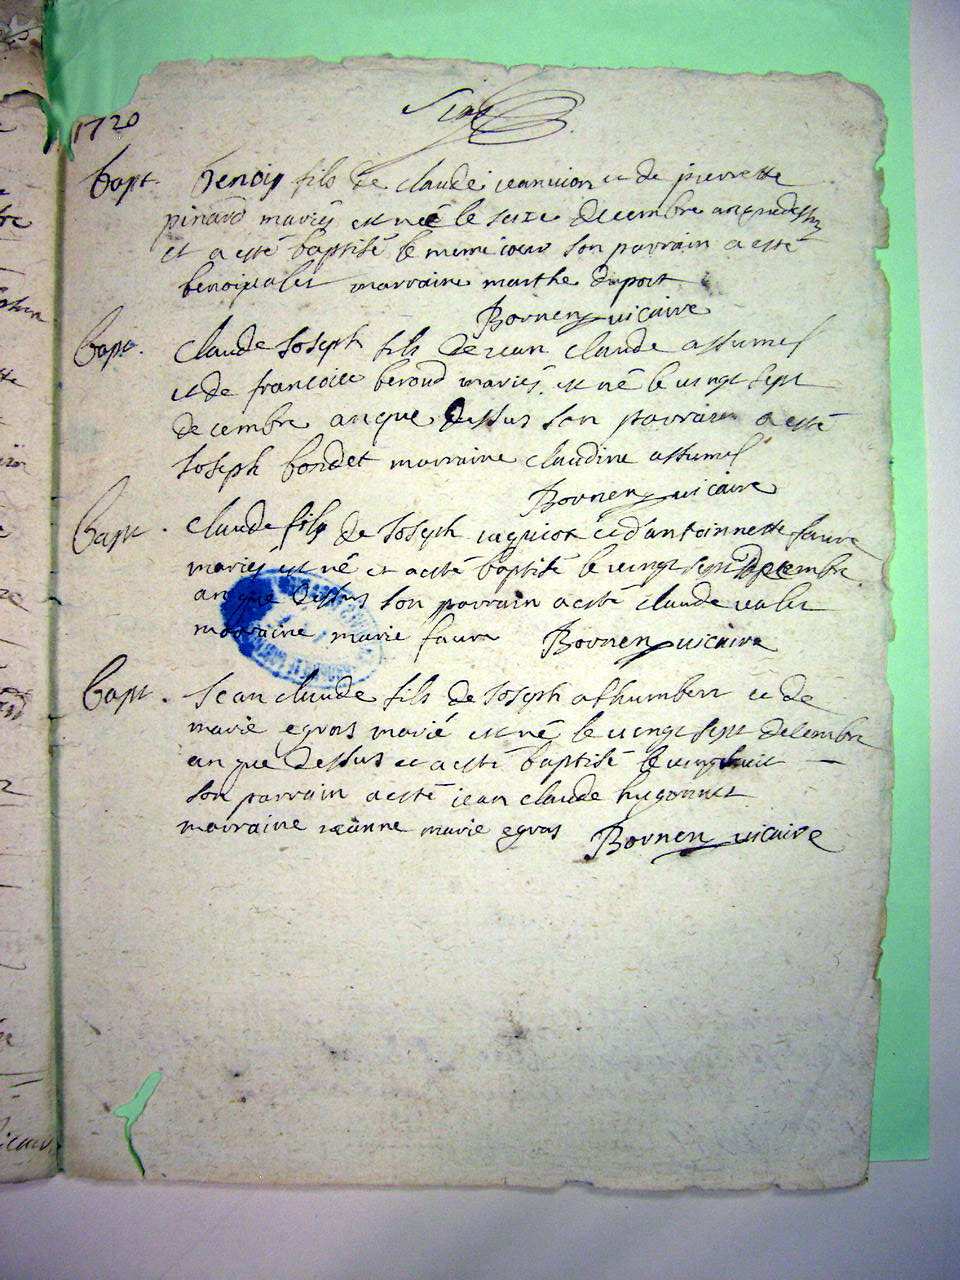 1720
bapt. benoist fils de claude ieanuion et de pierrette
pinard mariés est né le seize decembre an que dessus
et a esté baptisé le meme iour son parrain a esté
benoi ualet marraine marthe duport
Bornen uicaire
bapt. Claude Joseph fils de iean claude assumel
et de francoise beroud mariés est né le uingt sept
decembre an que dessus son parrain a esté
Joseph bondet marraine claudine assumel
Bornen uicaire
bapt. Claude fils de Joseph et d'antoinnette faure
mariés est né et a esté baptisé le uingt sept decembre
an que dessus son parrain a esté claude ualet
marraine marie faure Bornen uicaire
bapt. Jean claude fils de Joseph et de
marie egros marié est né le uingt sept decembre
an que dessus et a esté baptisé le uingt huit
son parrain a esté iean claude hugonnet
marraine ieanne marie egros Bornen uicaire